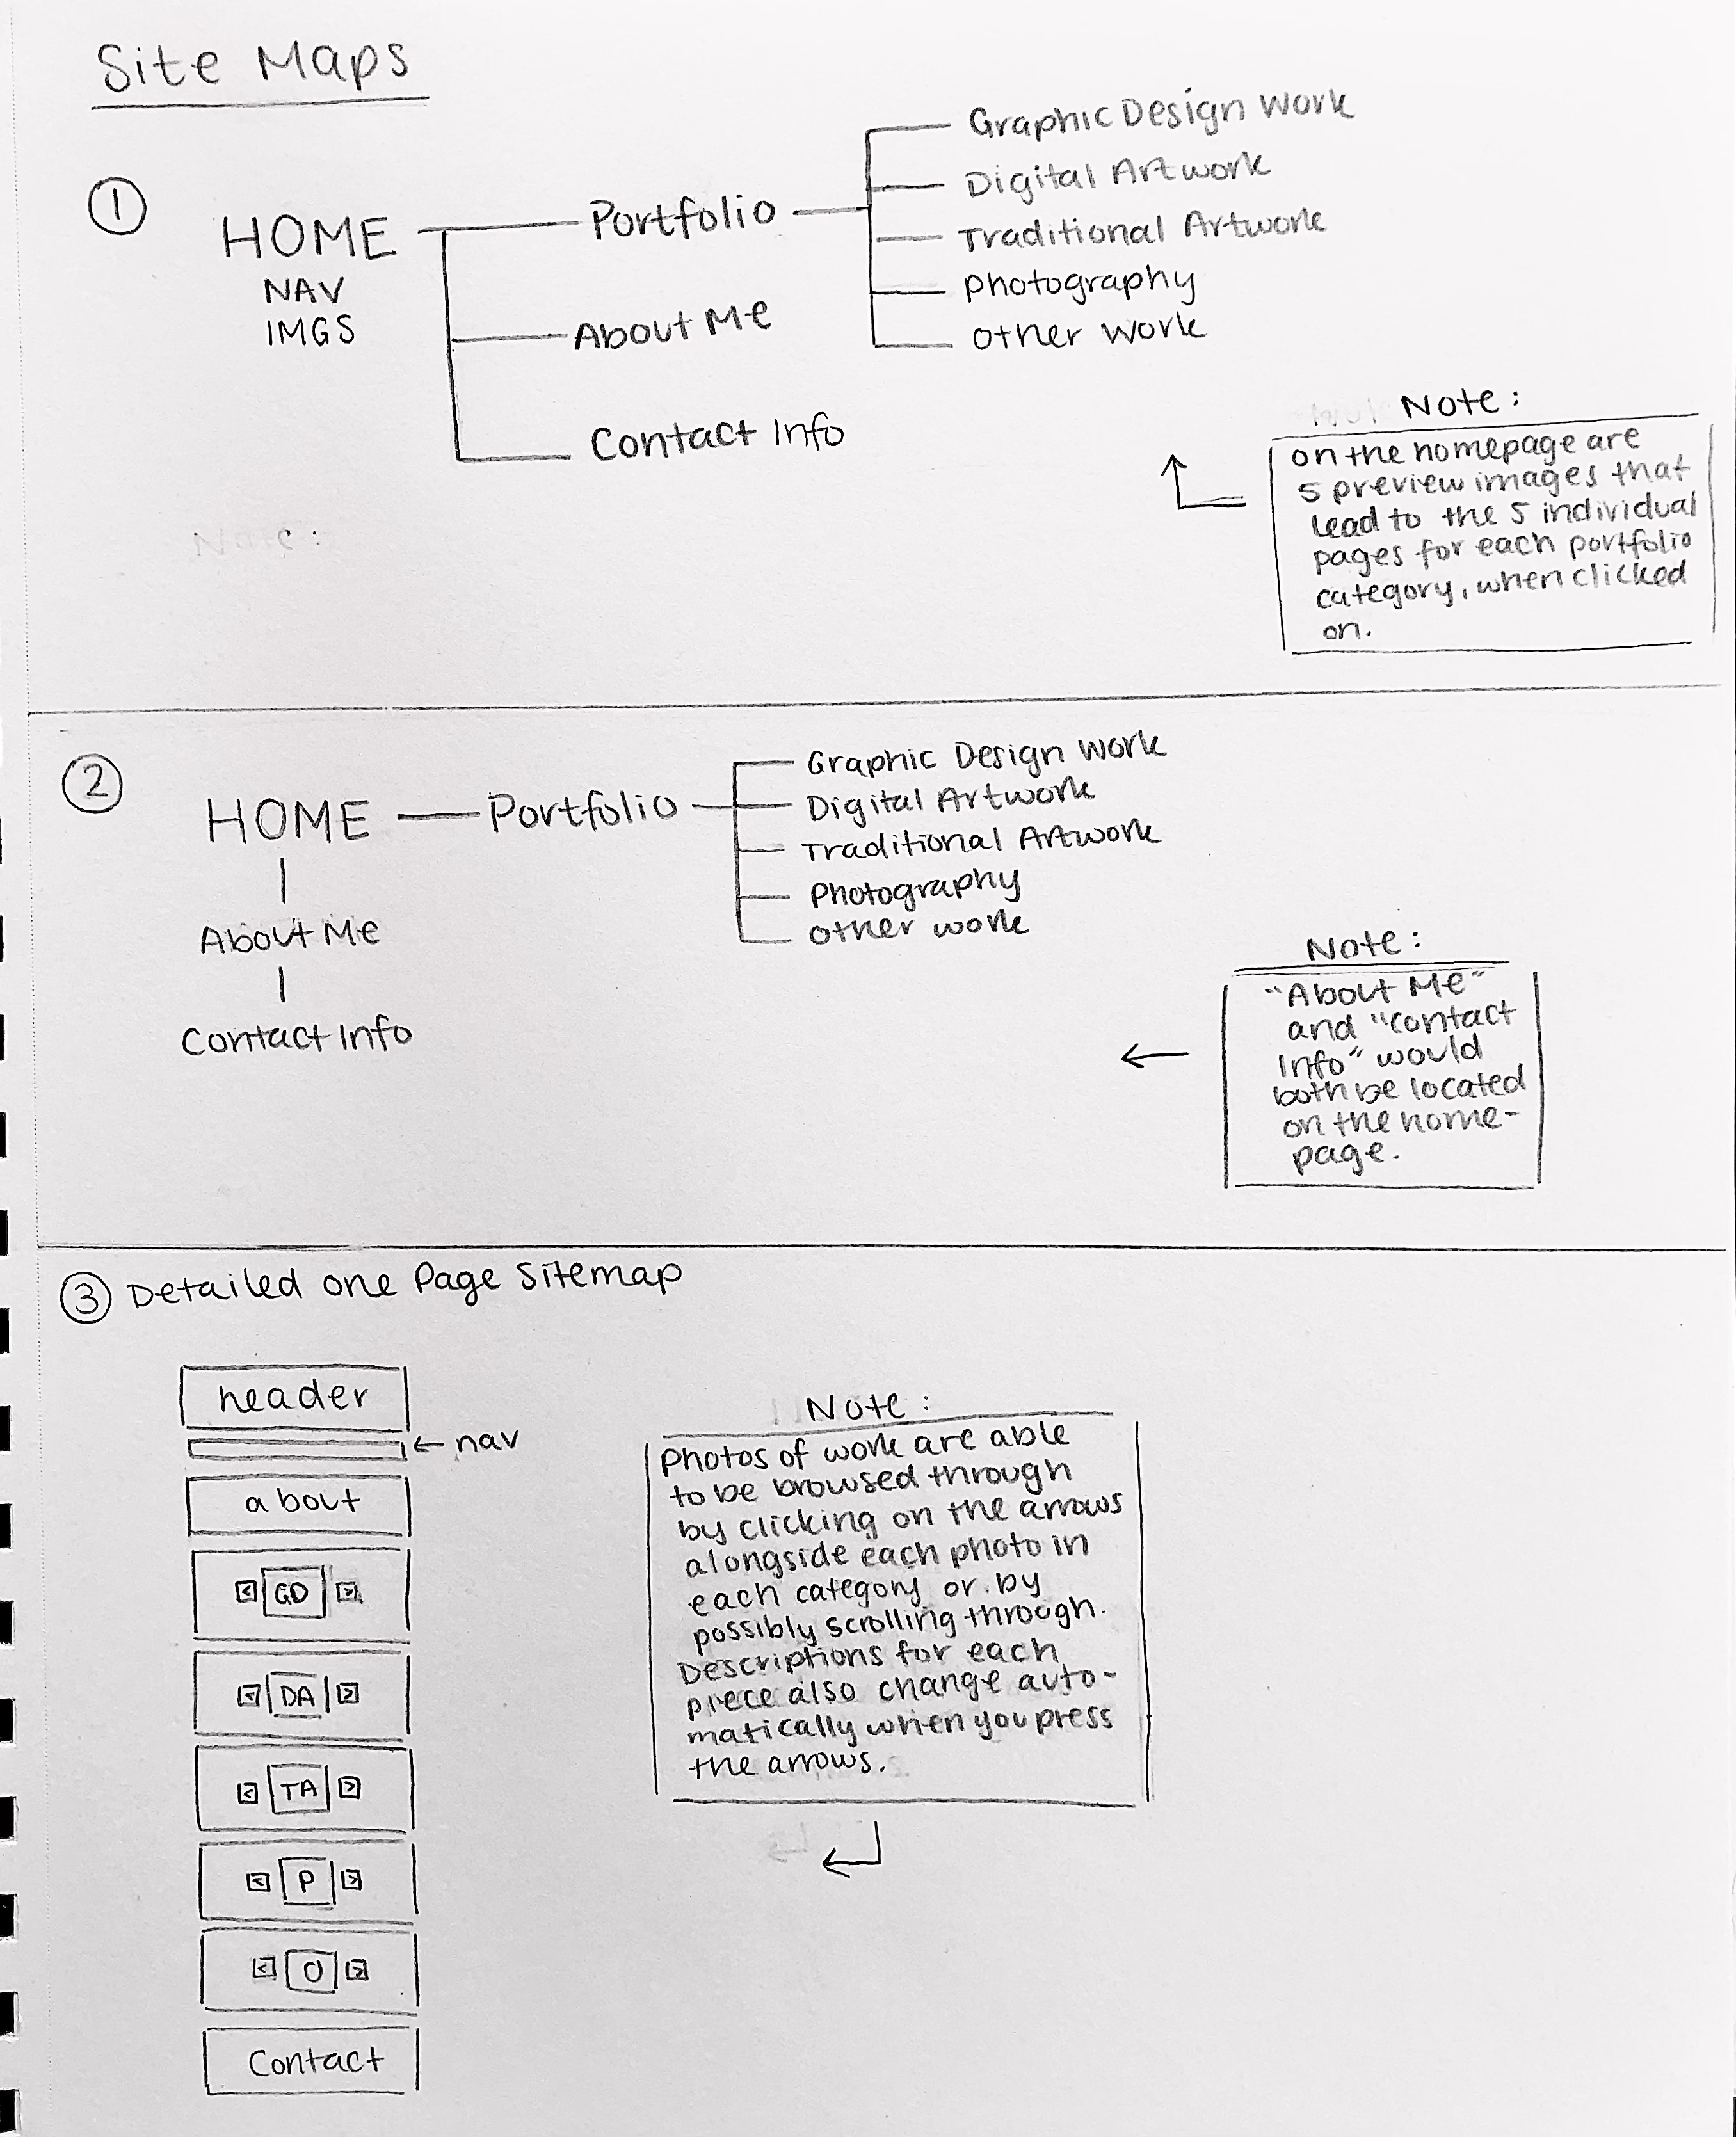 Site Maps
1
HOME
NAV
IMGS
Portfolio
About Me
Contact Info
Graphic Design Work
Digital Artwork
Traditional Artwork
Photography
Other Work
Note:
on the homepage are
5 preview images that
lead to the 5 individual
pages for each portfolio
category, when clicked
on.
Note:
2
HOME
Portfolio
About Me
Contact Info
Graphic Design Work
Digital Artwork
Traditional Artwork
Photography
Other work
Note:
"About Me"
and "Contact
Info" would
both be located
on the home-
page.
3 Detailed One Page Sitemap
header
← nav
about
< GD >
< DA >
< TA >
< P >
< O >
Contact
Note:
Photos of work are able
to be browsed through
by clicking on the arrows
alongside each photo in
each category or by
possibly scrolling through.
Descriptions for each
piece also change auto-
matically when you press
the arrows.